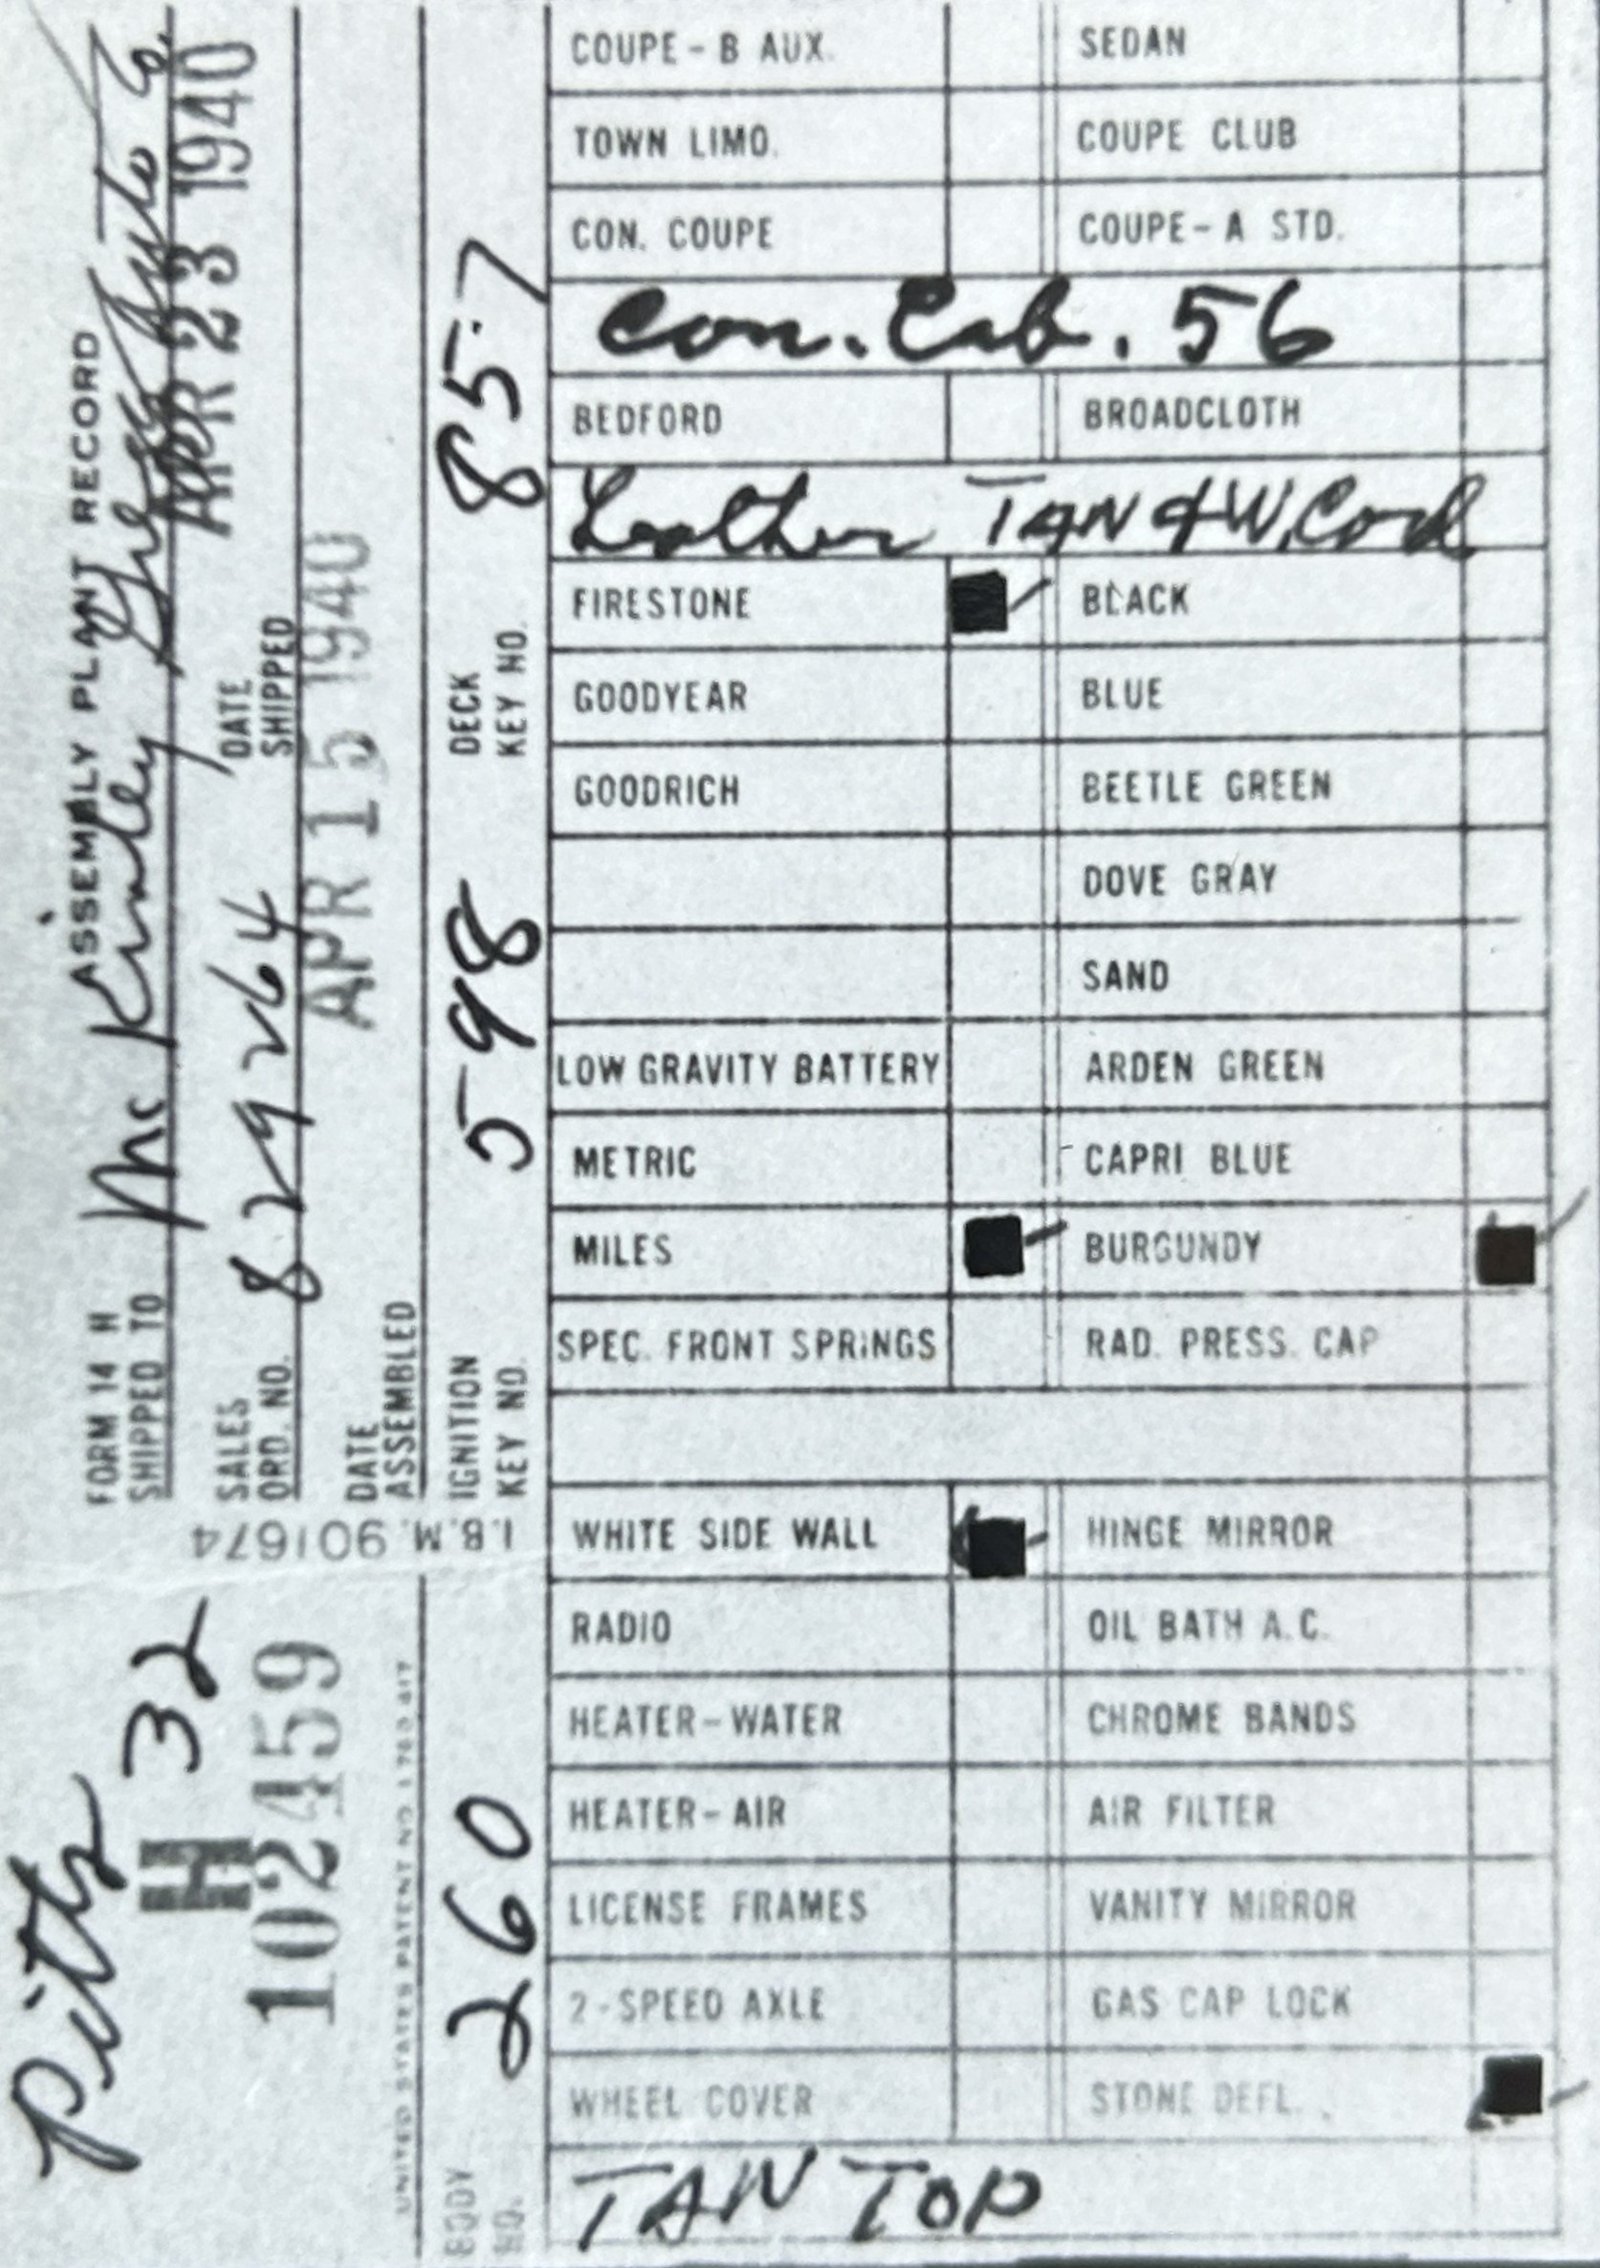 ASSEMBLY PLANT RECORD
FORM 14 H
SHIPPED TO Mc Kinley Gregg Auto Co.
SALES ORD. NO. 829264
DATE SHIPPED APR 23 1940
DATE ASSEMBLED APR 15 1940
IGNITION KEY NO. 598
DECK KEY NO. 857
I.B.M. 901674
Pitts 32
H
102459
UNITED STATES PATENT NO. 1 783 817
BODY NO. 260
COUPE-B AUX. SEDAN
TOWN LIMO. COUPE CLUB
CON. COUPE COUPE-A STD.
Con. Cab. 56
BEDFORD BROADCLOTH
Leather TAN & W. Cord
FIRESTONE BLACK
GOODYEAR BLUE
GOODRICH BEETLE GREEN
DOVE GRAY
SAND
LOW GRAVITY BATTERY ARDEN GREEN
METRIC CAPRI BLUE
MILES BURGUNDY
SPEC. FRONT SPRINGS RAD. PRESS. CAP
WHITE SIDE WALL HINGE MIRROR
RADIO OIL BATH A.C.
HEATER-WATER CHROME BANDS
HEATER-AIR AIR FILTER
LICENSE FRAMES VANITY MIRROR
2-SPEED AXLE GAS CAP LOCK
WHEEL COVER STONE DEFL.
TAN TOP